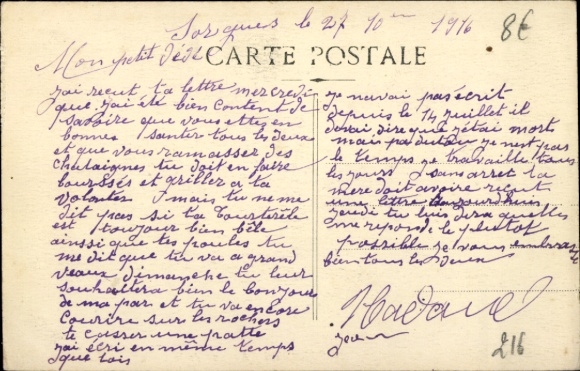 Sorgues le 27 10 1916
8€
Mon petit
CARTE POSTALE
jai recut ta lettre mercredi
que jai été bien content de
savoire que vous ettes en
bonnes santer tous les deux
et que vous ramasser des
chataignes tu doit en faire
et griller a ta
volontes mais tu ne me
dit pas si ta tourterele
est toujour bien bèle
ainsi que tes poules tu
me dit que tu va a grand
veaux dimanche tu leur
souhaitera bien le bonjour
de ma par et tu va encore
courire sur les rochers
te casser une patte
jai ecri en même temps
que tois
je navai pas écrit
depuis le 14 juillet il
devai dire que jétai morts
mais pas du tou je nest pas
le temps je travaille tous
les jours sans aret ta
mere doit avoire recut
une lettre aujourdhuis
jeudi tu luis dira quelles
me repond le plutot
possible je vous embras
bien tous les deux
216